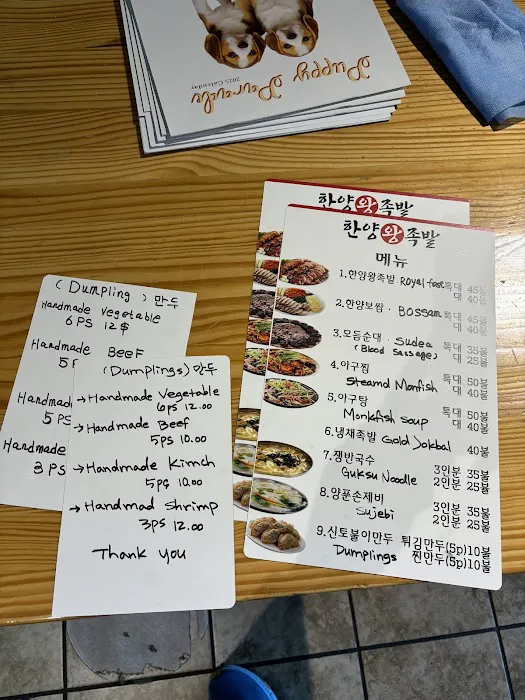 Puppy
2025 Calendar
한양왕족발
한양왕족발
메뉴
1.한양왕족발 Royal feet 특대 45불
대 40불
2.한양보쌈. Bossam 특대 45불
대 40불
3.모듬순대. Sudea 특대 35불
(Blood Sausage) 대 25불
4.아구찜
Steamd Monfish 특대 50불
대 40불
5.아구탕
Monkfish soup 특대 50불
대 40불
6.냉채족발 Gold Jokbal 40불
7.쟁반국수
Guksu Noodle 3인분 35불
2인분 25불
8.양푼손제비
Sujebi 3인분 35불
2인분 25불
9.신토불이만두 튀김만두(5p)10불
Dumplings 찐만두(5p)10불
(Dumpling) 만두
Handmade Vegetable
6PS 12$
Handmade BeeF
5
Handma
5 PS
Handma
3 PS
(Dumplings) 만두
→ Handmade Vegetable
6ps 12.00
→ Handmade Beef
5ps 10.00
→ Handmade Kimch
5ps 10.00
→ Handmad Shrimp
3ps 12.00
Thank you